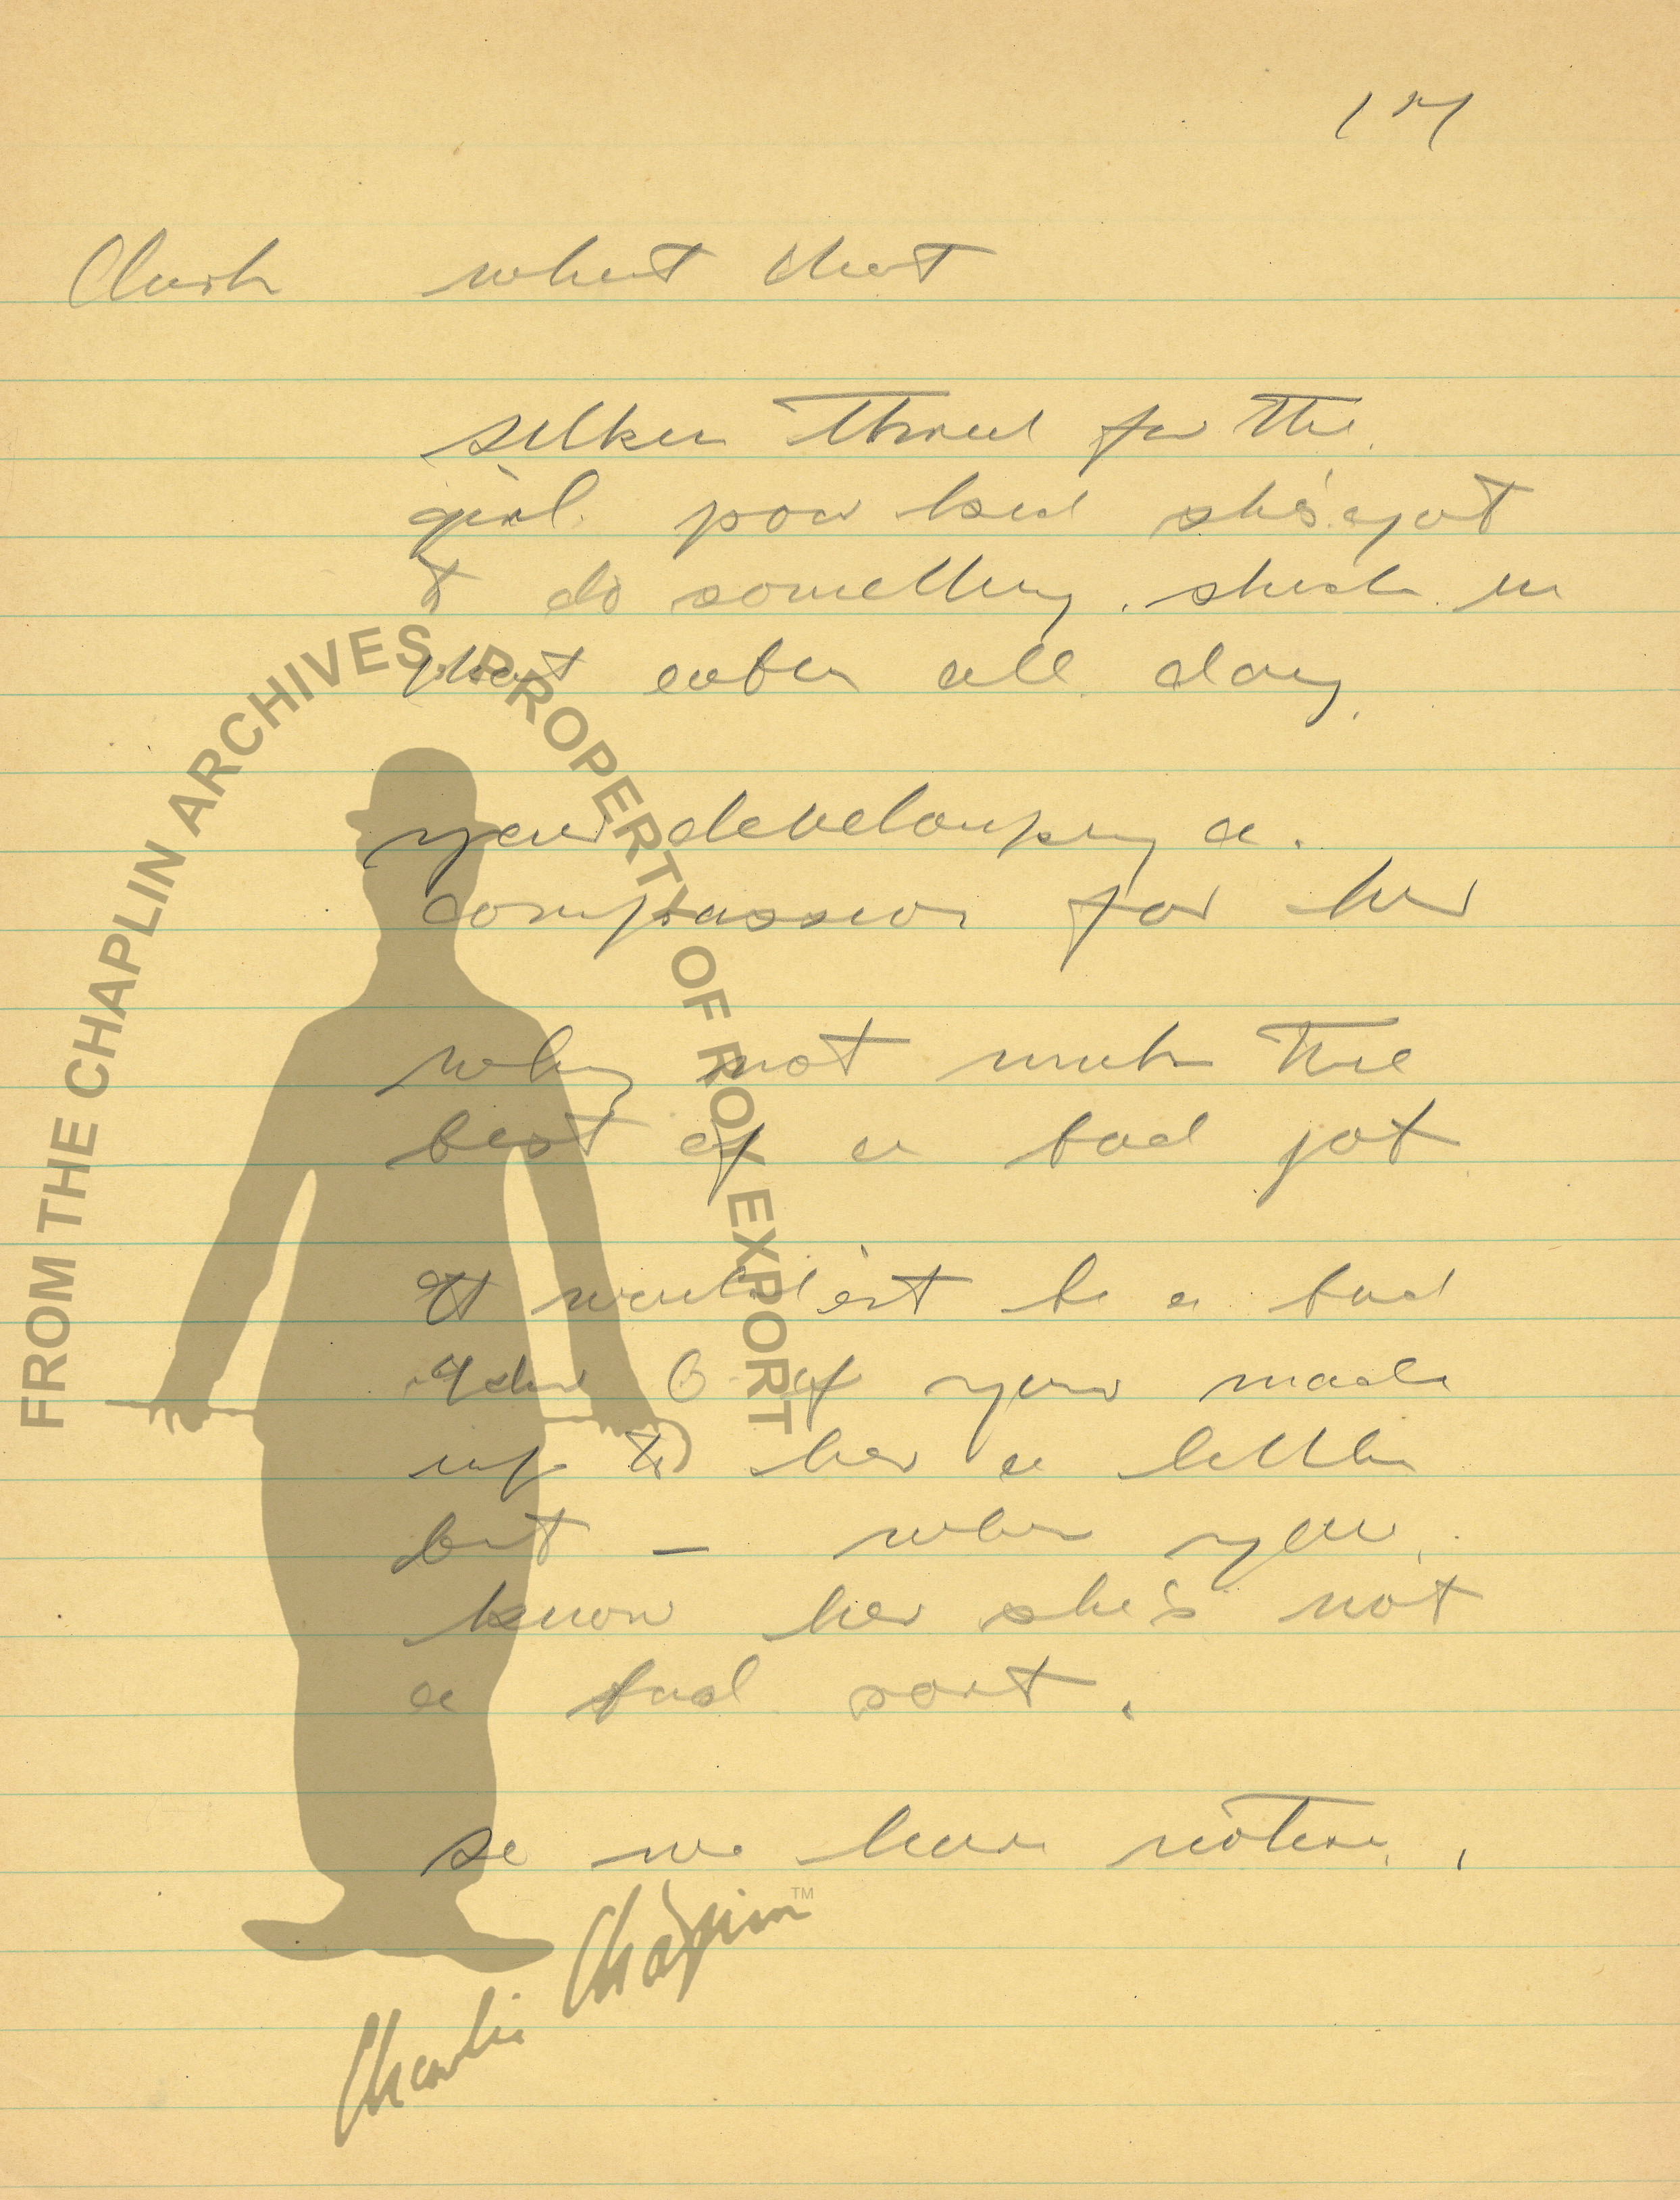 17
Clark what that
silken thred for the
girl poor kid she's got
to do something. stuck in
that cabin all day.
your developing a.
compassion for her
why not make the
best of a bad job
It would'ent be a bad
if you made
up to her a little
bit — when you
know her she's not
a bad sort.
se we have
FROM THE CHAPLIN ARCHIVES. PROPERTY OF ROY EXPORT
Charlie Chaplin™